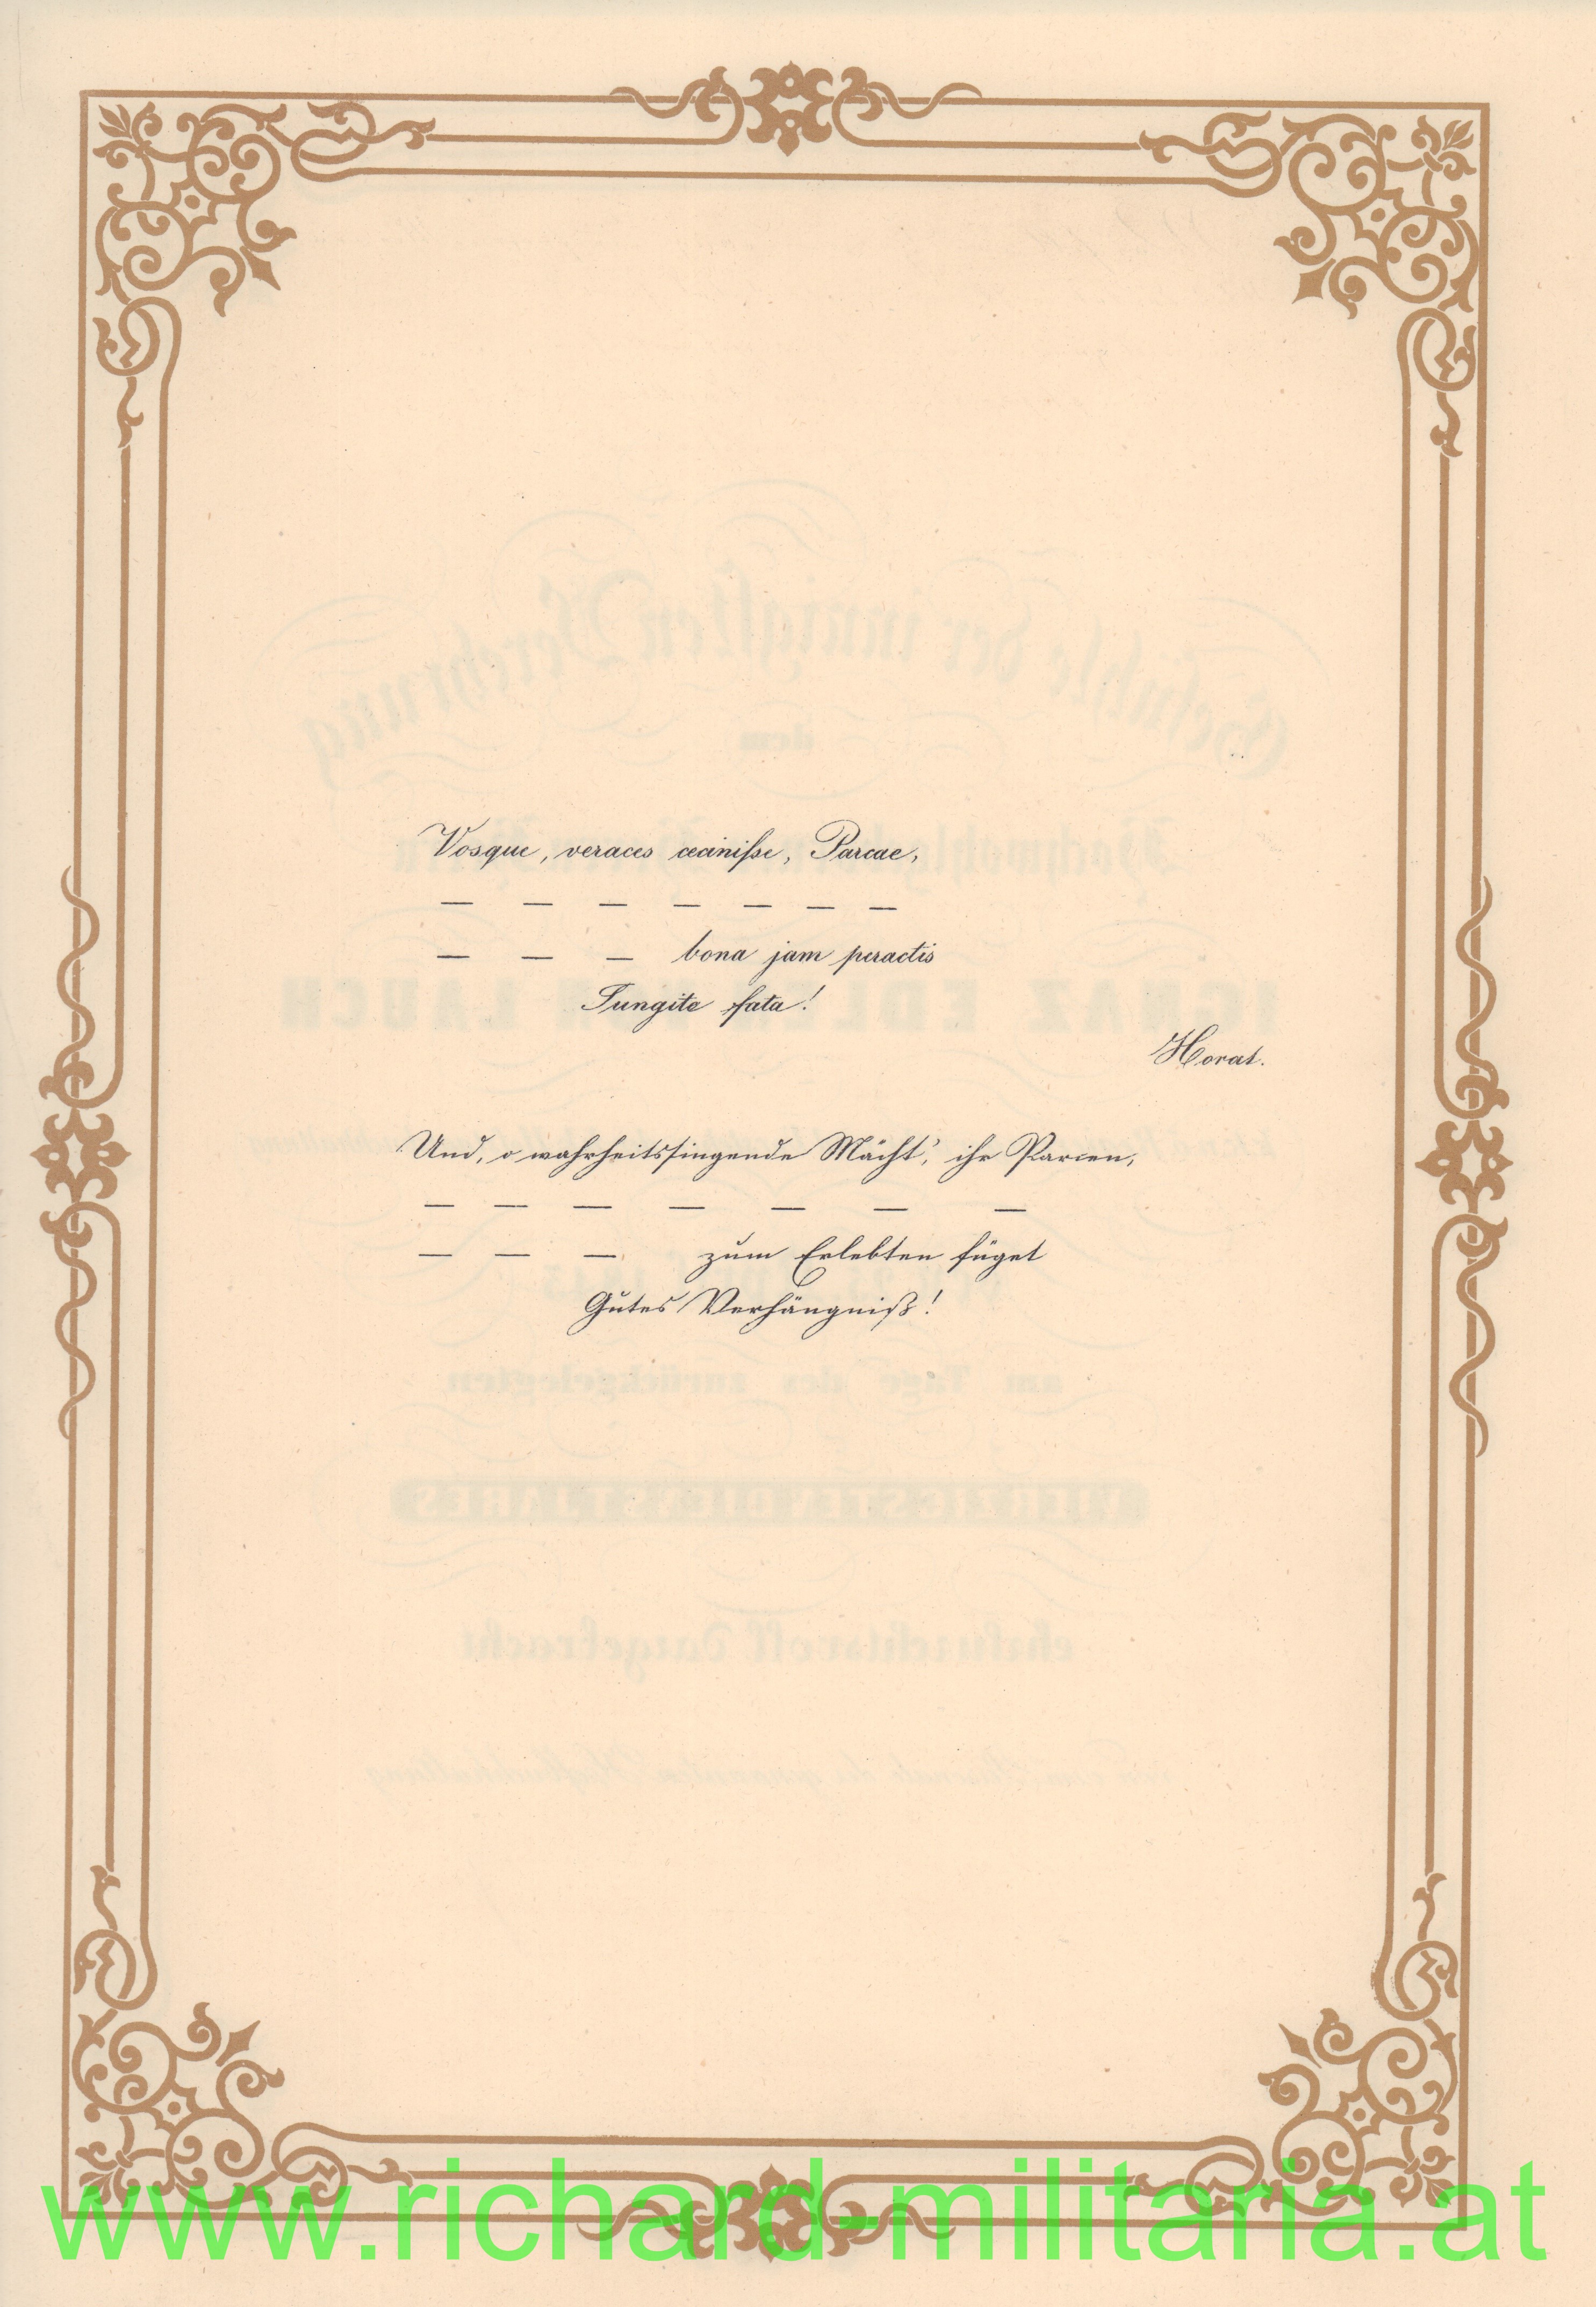 Vosque, veraces ceciniſse, Parcae,
— — — — — — —
— — — bona jam peractis
Jungite fata!
Horat.
Und, o wahrheitssingende Mächt', ihr Parcen,
— — — — — — —
— — — zum Erlebten füget
Gutes Verhängniß!
www.richard-militaria.at